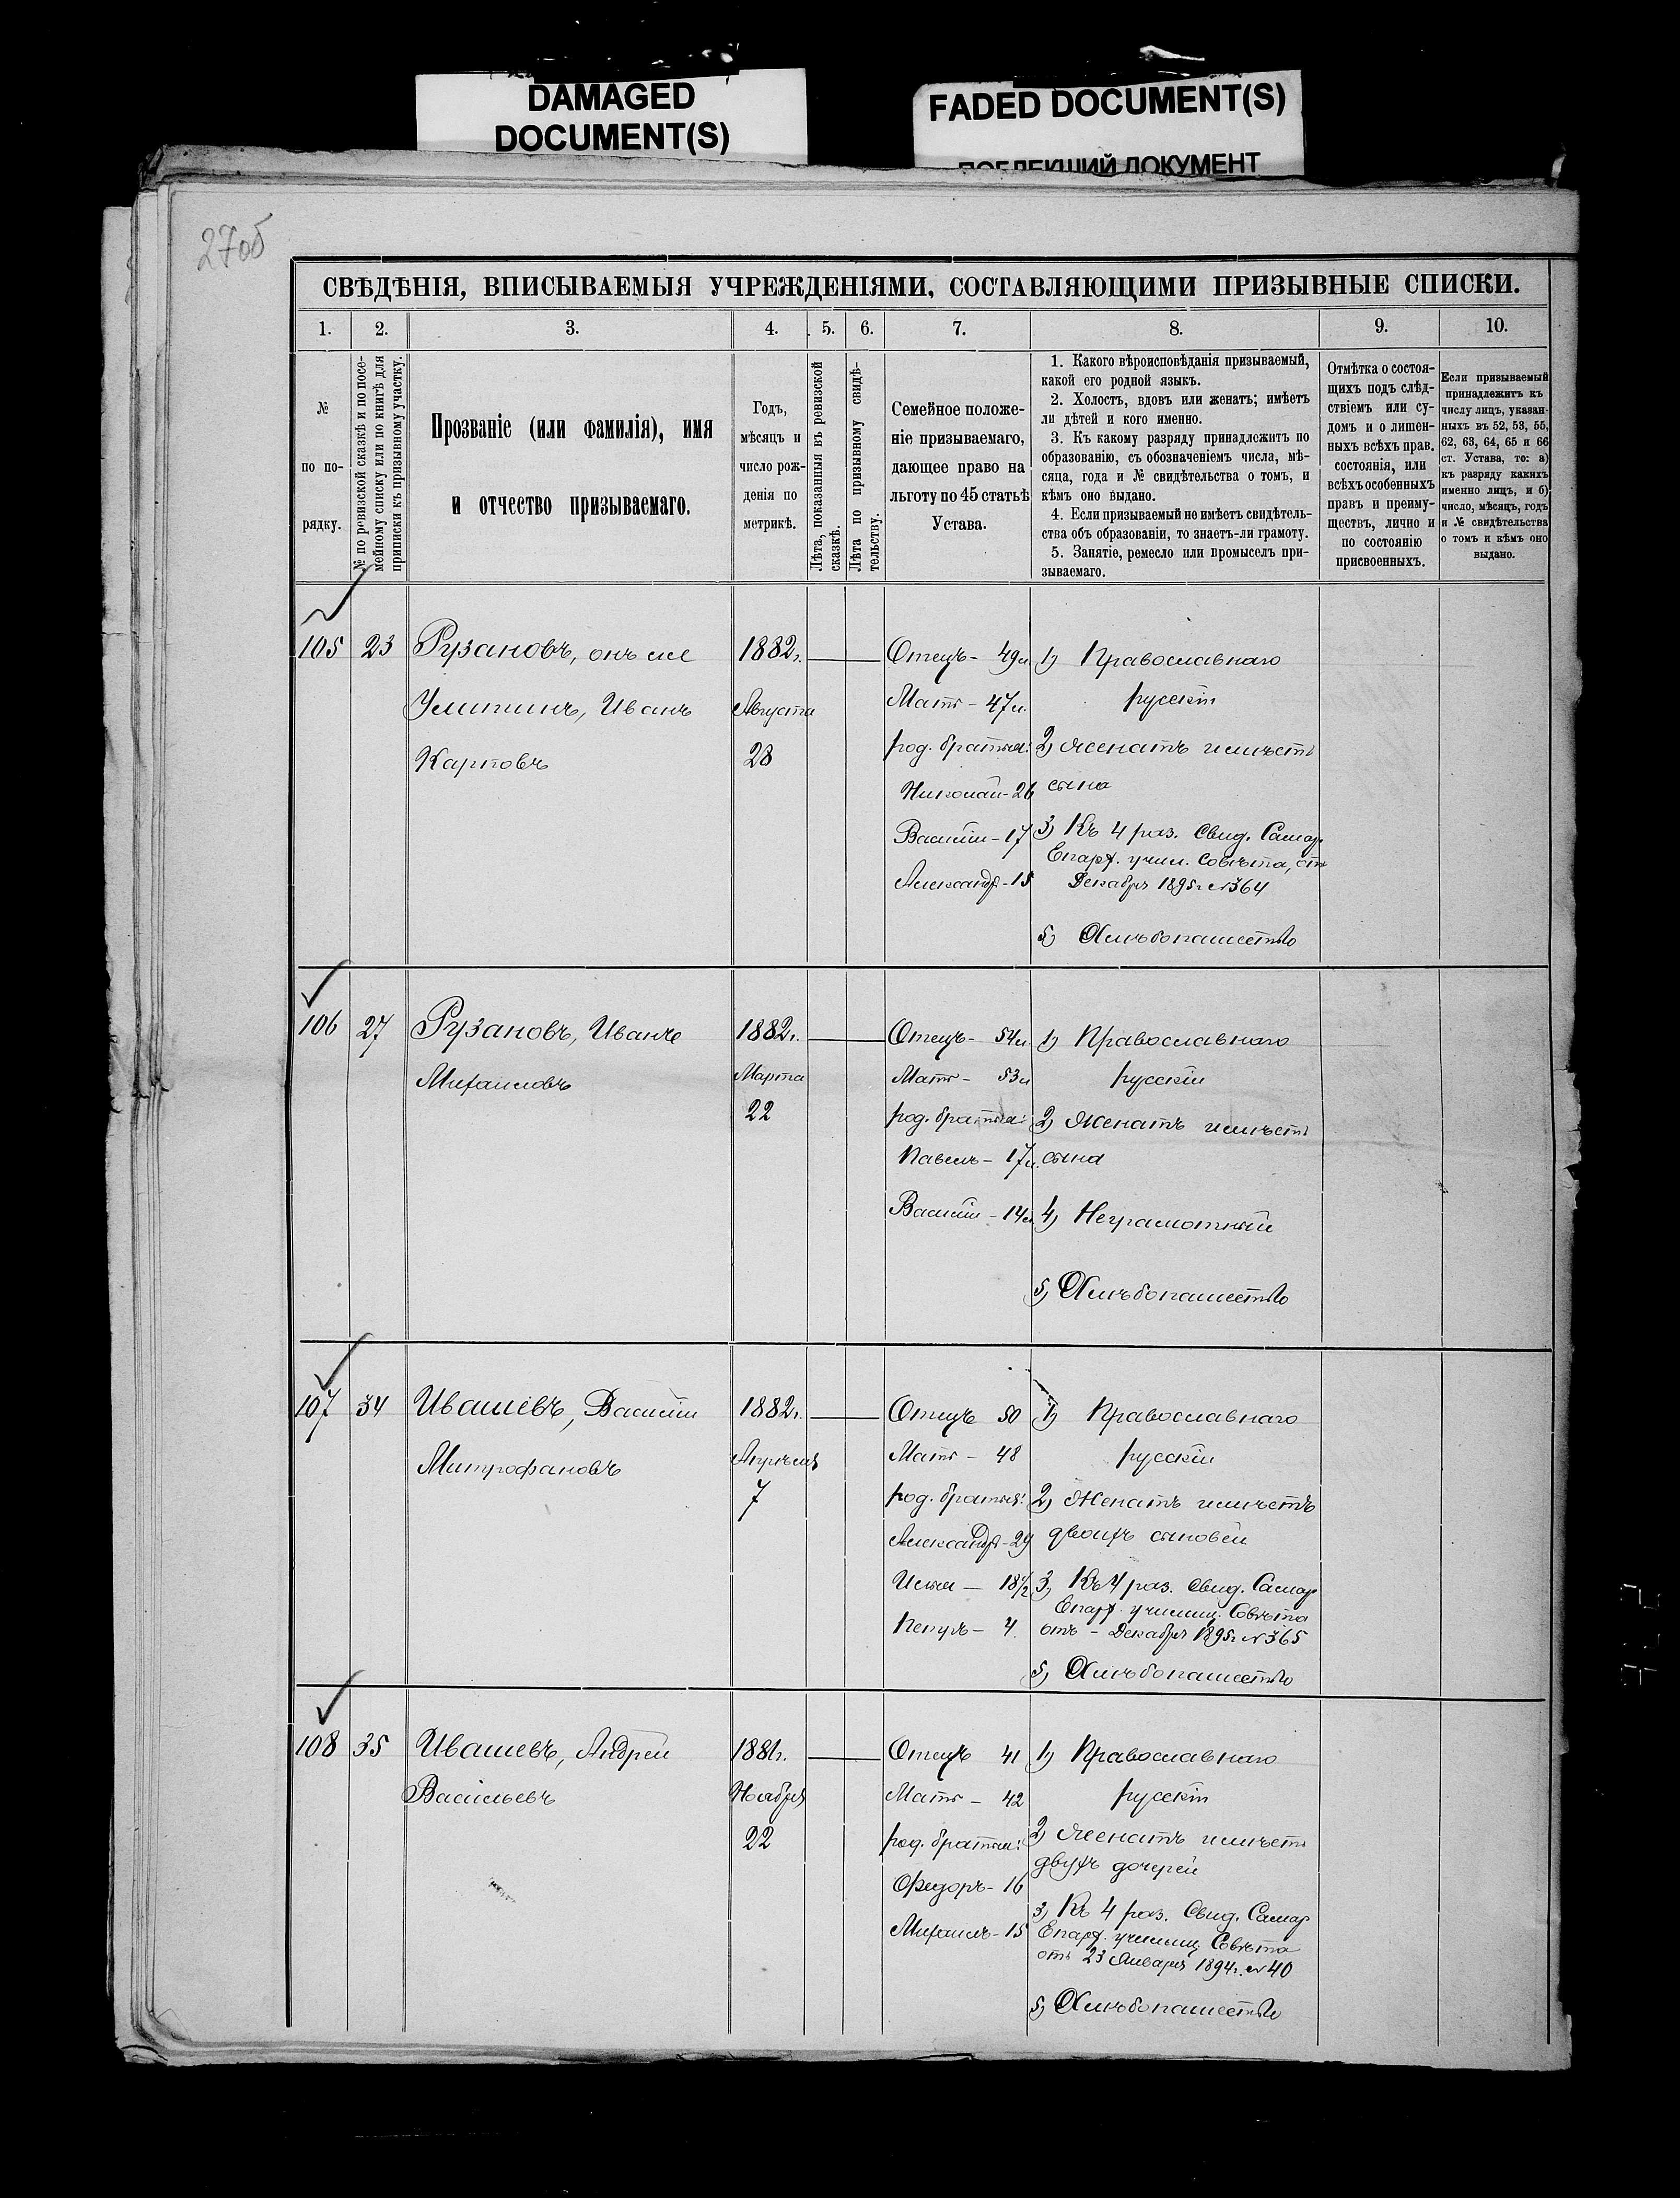 DAMAGED
DOCUMENT(S)
FADED DOCUMENT(S)
ПОБЛЕКШИЙ ДОКУМЕНТ
27об
СВѢДѢНІЯ, ВПИСЫВАЕМЫЯ УЧРЕЖДЕНІЯМИ, СОСТАВЛЯЮЩИМИ ПРИЗЫВНЫЕ СПИСКИ.
1. 2. 3. 4. 5. 6. 7. 8. 9. 10.
№
по по-
рядку.
№ по ревизской сказкѣ и по посе-
мейному списку или по книгѣ для
приписки къ призывному участку.
Прозваніе (или фамилія), имя
и отчество призываемаго.
Годъ,
мѣсяцъ и
число рож-
денія по
метрикѣ.
Лѣта, показанныя въ ревизской
сказкѣ.
Лѣта по призывному свидѣ-
тельству.
Семейное положе-
ніе призываемаго,
дающее право на
льготу по 45 статьѣ
Устава.
1. Какого вѣроисповѣданія призываемый,
какой его родной языкъ.
2. Холостъ, вдовъ или женатъ; имѣетъ
ли дѣтей и кого именно.
3. Къ какому разряду принадлежитъ по
образованію, съ обозначеніемъ числа, мѣ-
сяца, года и № свидѣтельства о томъ, и
кѣмъ оно выдано.
4. Если призываемый не имѣетъ свидѣтель-
ства объ образованіи, то знаетъ-ли грамоту.
5. Занятіе, ремесло или промыселъ при-
зываемаго.
Отмѣтка о состоя-
щихъ подъ слѣд-
ствіемъ или су-
домъ и о лишен-
ныхъ всѣхъ прав.
состоянія, или
всѣхъ особенныхъ
правъ и преиму-
ществъ, лично и
по состоянію
присвоенныхъ.
Если призываемый
принадлежитъ къ
числу лицъ, указан-
ныхъ въ 52, 53, 55,
62, 63, 64, 65 и 66
ст. Устава, то: а)
къ разряду какихъ
именно лицъ, и б)
число, мѣсяцъ, годъ
и № свидѣтельства
о томъ и кѣмъ оно
выдано.
105 23 Рузановъ, онъ же
Иванъ
Карповъ
1882г.
Августа
28
Отецъ - 49л
Мать - 47л.
род. братья:
Николай - 26
Василій - 17
Александр - 15
1) Православнаго
русскій
2) Женатъ имѣетъ
сына
3) Къ 4 раз. Свид. Самар.
Епарх. учил. Совѣта, отъ
Декабря 1895г №364
5) Хлѣбопашество
106 27 Рузановъ, Иванъ
Михаиловъ
1882г.
Марта
22
Отецъ - 54л.
Мать - 53л
род. братья:
Павелъ - 17л.
Василій - 14л
1) Православнаго
русскій
2) Женатъ имѣетъ
сына
4) Неграмотный
5) Хлѣбопашество
107 34 Ивашевъ, Василій
Митрофановъ
1882г.
Апрѣля
7
Отецъ 50
Мать - 48
род. братья:
Александръ - 29
Илья - 18½
Петръ - 4
1) Православнаго
русскій
2) Женатъ имѣетъ
двоихъ сыновей
3) Къ 4 раз. Свид. Самар
Епарх. училищ. Совѣта
отъ - Декабря 1895г №365
5) Хлѣбопашество
108 35 Ивашевъ, Андрей
Васильевъ
1881г.
Ноября
22
Отецъ 41
Мать - 42
род. братья:
Федоръ - 16
Михаилъ - 15
1) Православнаго
русскій
2) Женатъ имѣетъ
двухъ дочерей
3) Къ 4 раз. Свид. Самар
Епарх. училищ Совѣта
отъ 23 Января 1894г. №40
5) Хлѣбопашество